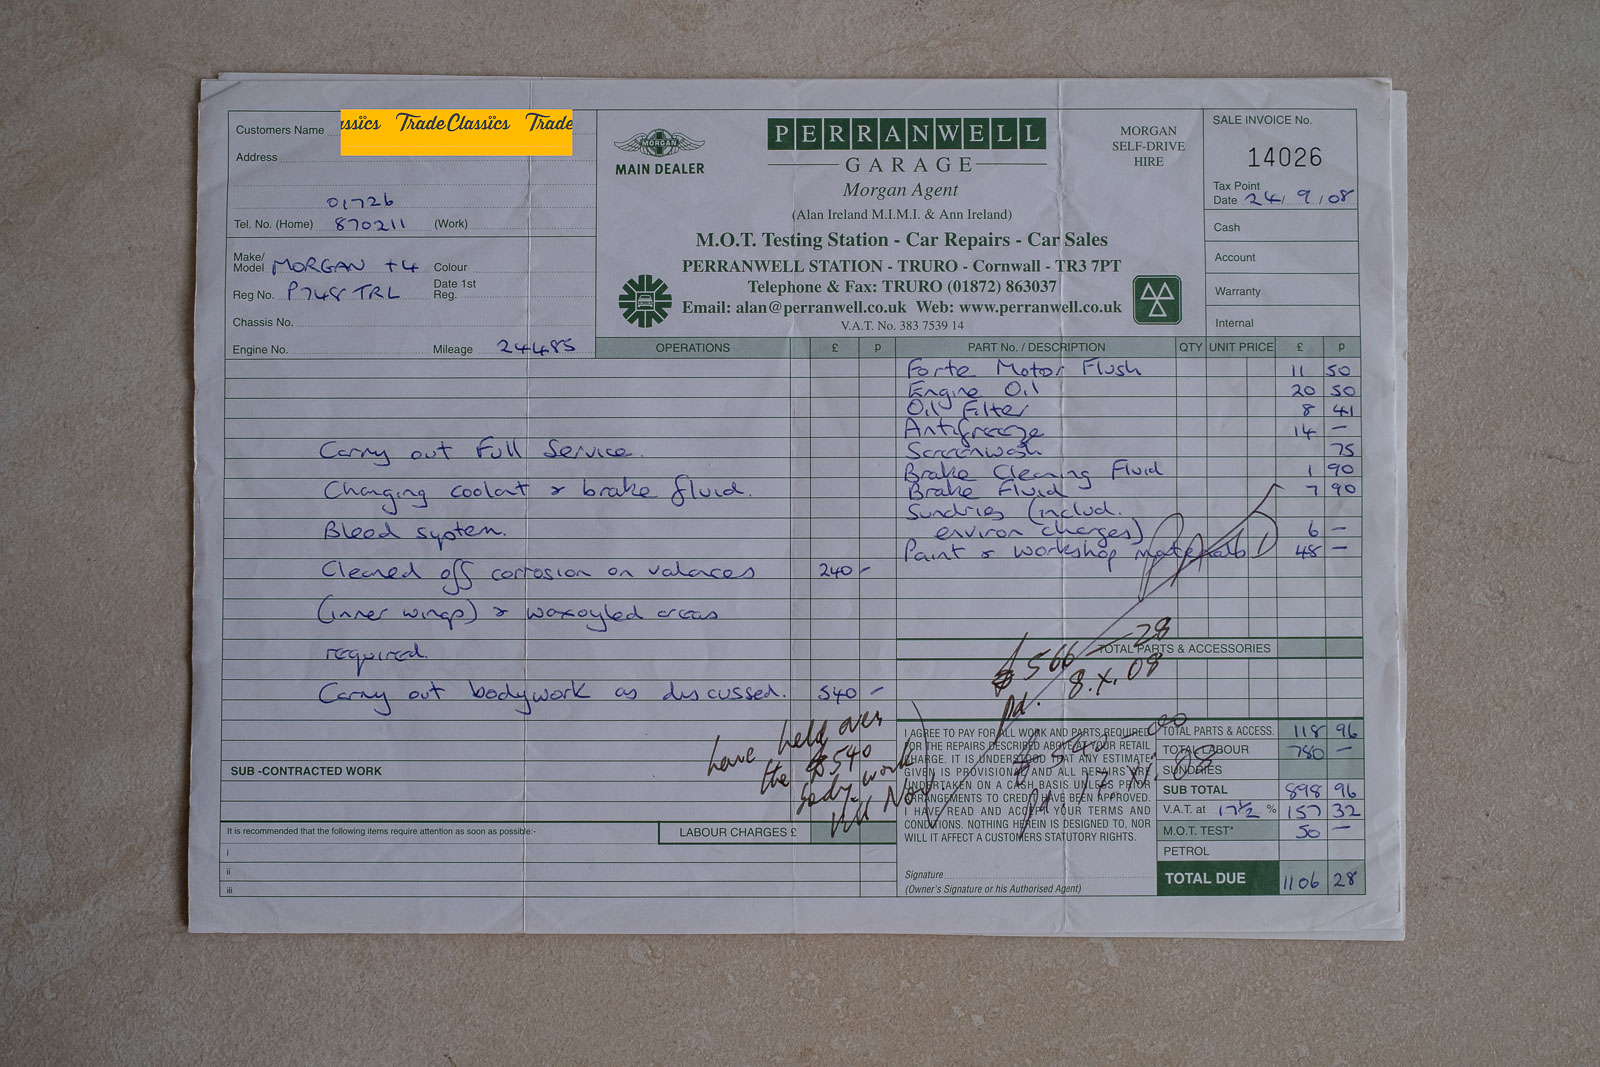 Customers Name
assics TradeClassics Trade
Address
01726
Tel. No. (Home) 870211 (Work)
Make/
Model MORGAN +4 Colour
Reg No. P748 TRL Date 1st
Reg.
Chassis No.
Engine No. Mileage 24485
MORGAN
MAIN DEALER
PERRANWELL
GARAGE
Morgan Agent
(Alan Ireland M.I.M.I. & Ann Ireland)
M.O.T. Testing Station - Car Repairs - Car Sales
PERRANWELL STATION - TRURO - Cornwall - TR3 7PT
Telephone & Fax: TRURO (01872) 863037
Email: alan@perranwell.co.uk Web: www.perranwell.co.uk
V.A.T. No. 383 7539 14
MORGAN
SELF-DRIVE
HIRE
SALE INVOICE No.
14026
Tax Point
Date 24/ 9 /08
Cash
Account
Warranty
Internal
OPERATIONS £ p
PART No. / DESCRIPTION QTY UNIT PRICE £ p
Forte Motor Flush 11 50
Engine Oil 20 50
Oil Filter 8 41
Antifreeze 14 -
Screenwash 75
Brake Cleaning Fluid 1 90
Brake Fluid 7 90
Sundries (includ.
environ charges) 6 -
Paint & workshop materials 48 -
Carry out Full Service.
Changing coolant & brake fluid.
Bleed system.
Cleaned off corrosion on valances 240 -
(inner wings) & waxoyled areas
required.
Carry out bodywork as discussed. 540 -
have held over
the £540
body-work
till Nov
£566-28
pd. 8.x.08
£540-00
pd. 17.xi.08
TOTAL PARTS & ACCESSORIES
SUB -CONTRACTED WORK
LABOUR CHARGES £
It is recommended that the following items require attention as soon as possible:-
i
ii
iii
I AGREE TO PAY FOR ALL WORK AND PARTS REQUIRED
FOR THE REPAIRS DESCRIBED ABOVE AT YOUR RETAIL
CHARGE. IT IS UNDERSTOOD THAT ANY ESTIMATE
GIVEN IS PROVISIONAL AND ALL REPAIRS ARE
UNDERTAKEN ON A CASH BASIS UNLESS PRIOR
ARRANGEMENTS TO CREDIT HAVE BEEN APPROVED.
I HAVE READ AND ACCEPT YOUR TERMS AND
CONDITIONS. NOTHING HEREIN IS DESIGNED TO, NOR
WILL IT AFFECT A CUSTOMERS STATUTORY RIGHTS.
Signature
(Owner's Signature or his Authorised Agent)
TOTAL PARTS & ACCESS. 118 96
TOTAL LABOUR 780 -
SUNDRIES
SUB TOTAL 898 96
V.A.T. at 17½ % 157 32
M.O.T. TEST* 50 -
PETROL
TOTAL DUE 1106 28